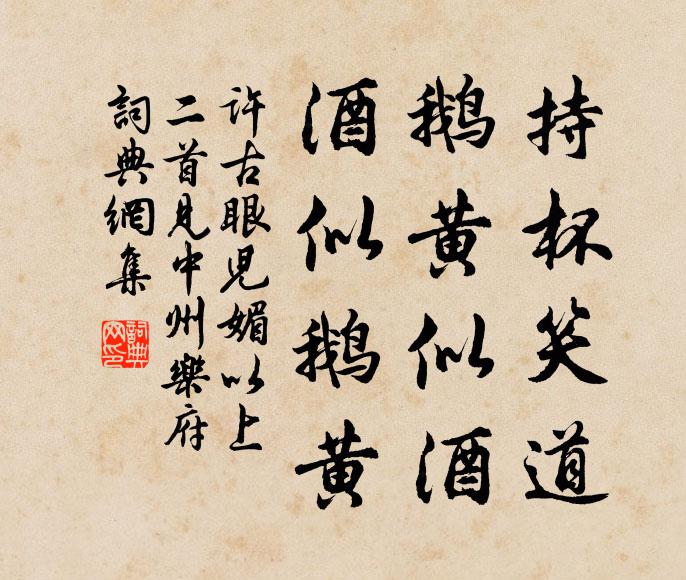 持杯笑道
鹅黄似酒
酒似鹅黄
許古眼兒媚以上
二首見中州樂府
詞典網集
詞典网印